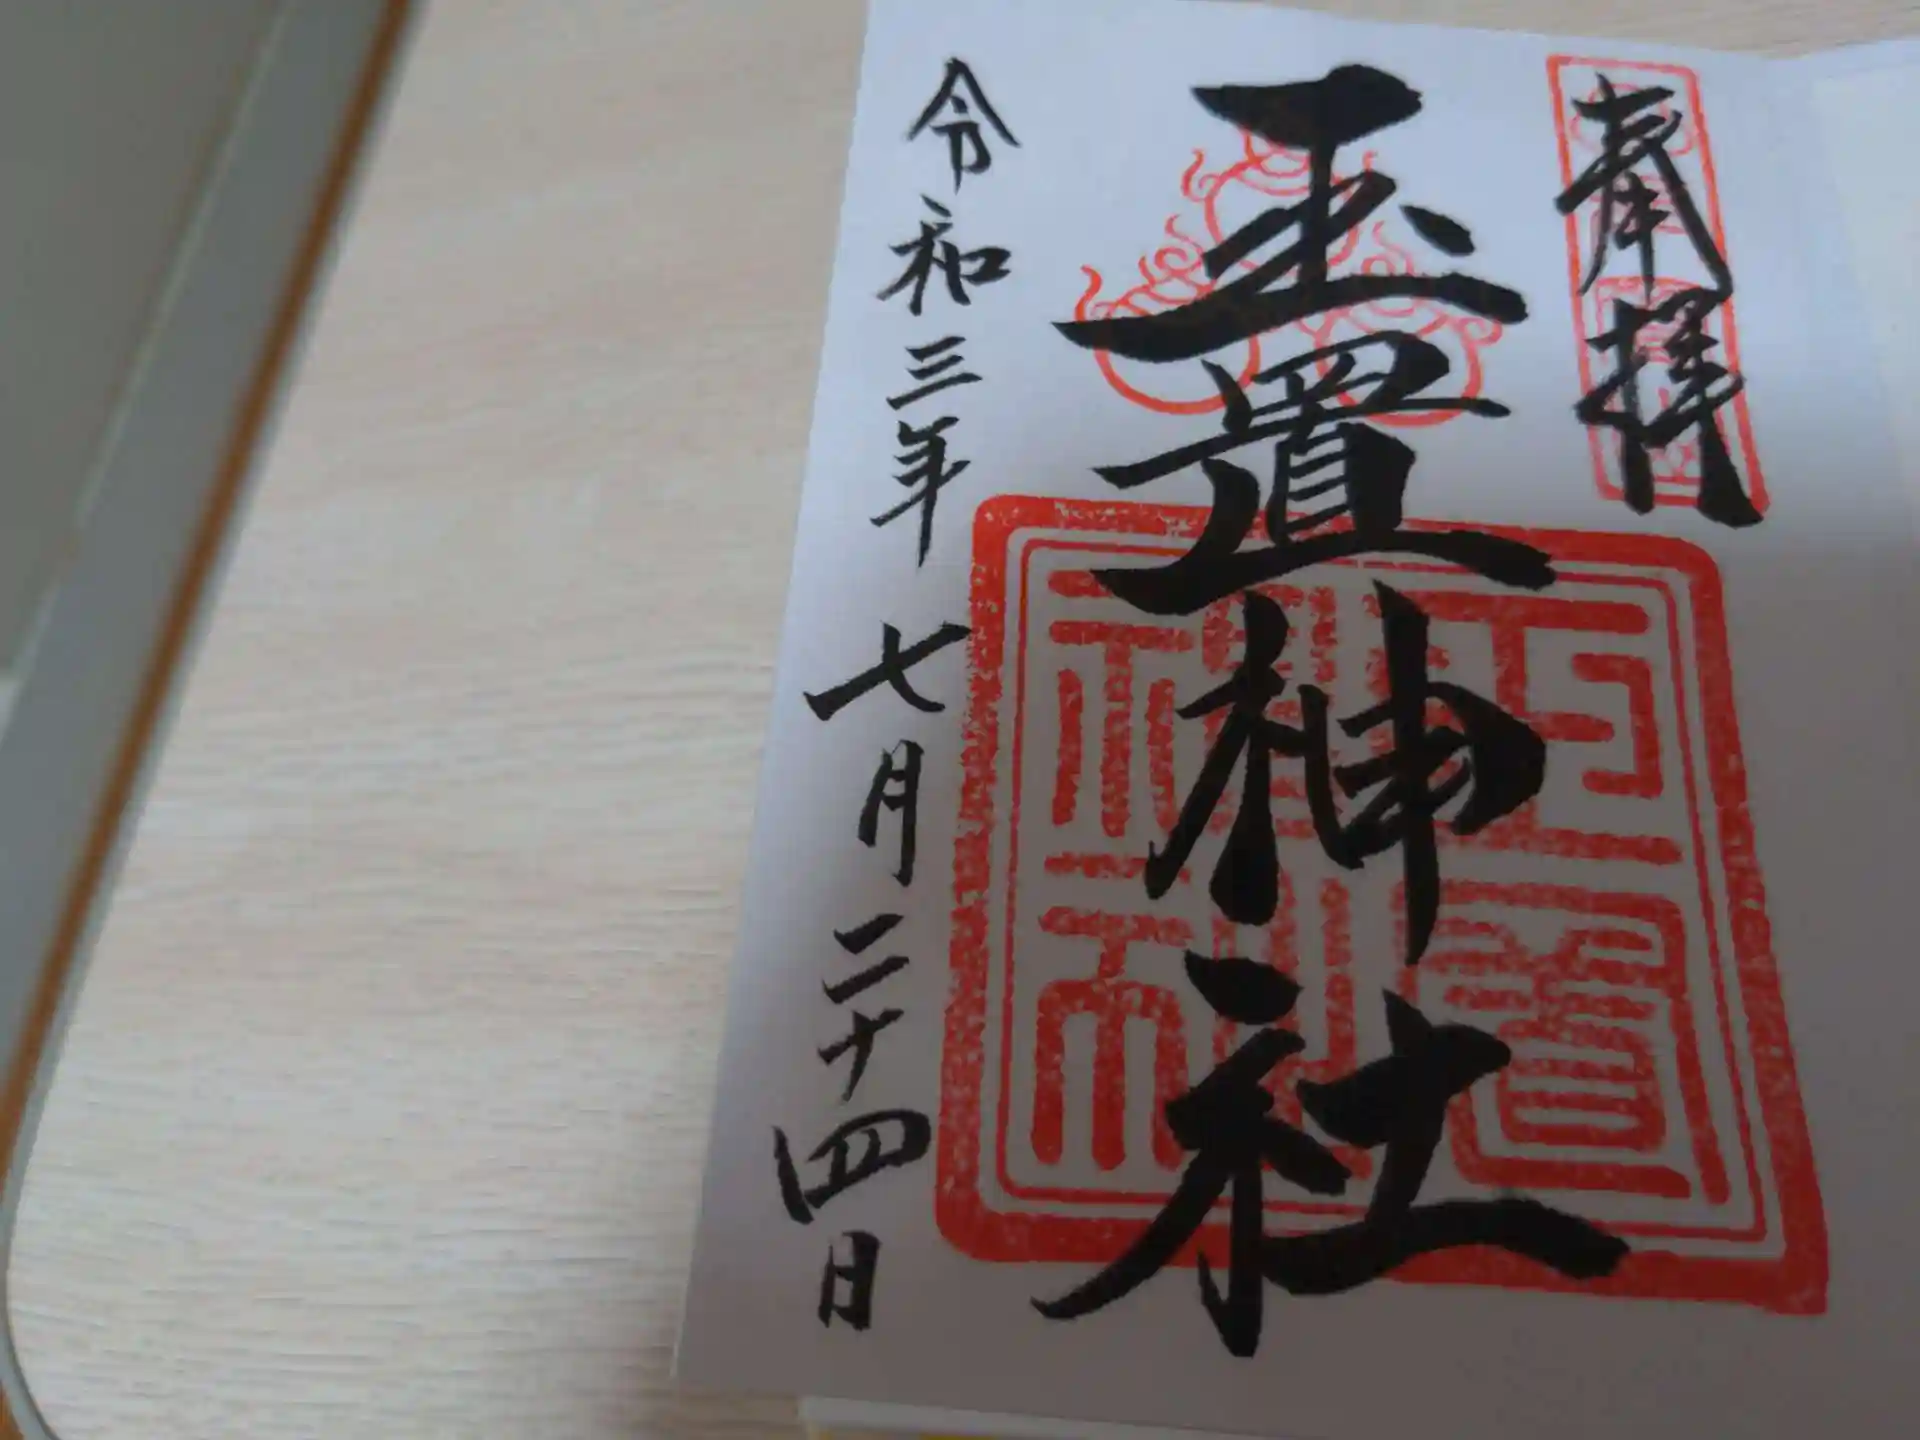 奉拝
玉置神社
玉置神社
令和三年七月二十四日